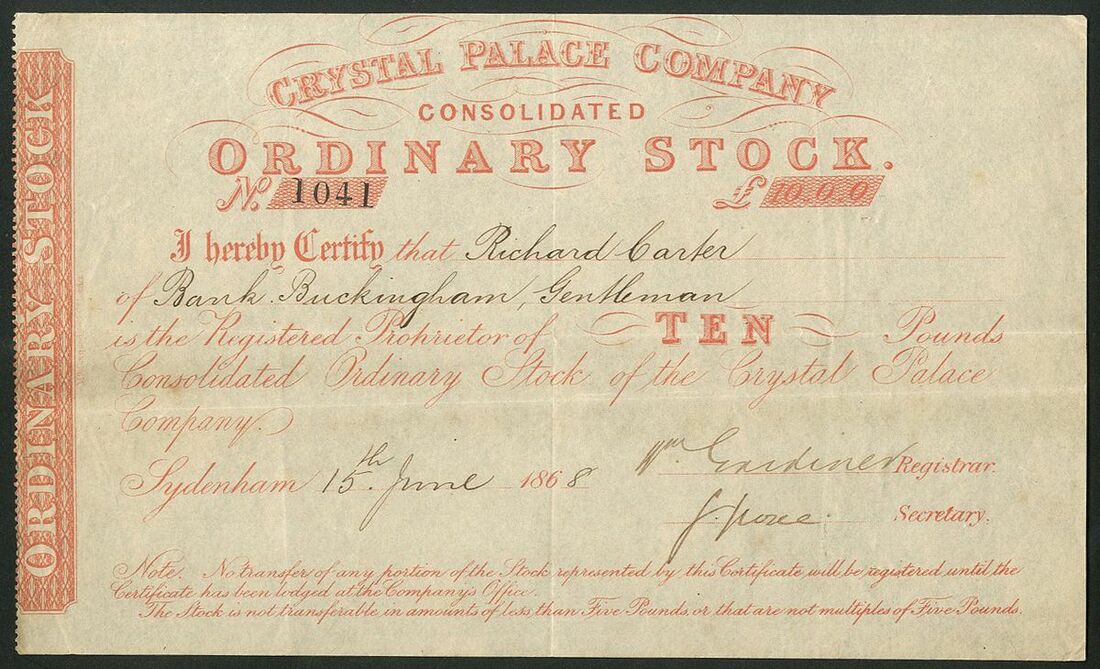 CRYSTAL PALACE COMPANY
CONSOLIDATED
ORDINARY STOCK.
No. 1041 £10.0.0
I hereby Certify that Richard Carter
of Bank. Buckingham, Gentleman
is the Registered Proprietor of TEN Pounds
Consolidated Ordinary Stock of the Crystal Palace
Company.
Sydenham 15th June 1868
Wm Gardiner Registrar.
Secretary.
Note. No transfer of any portion of the Stock represented by this Certificate will be registered until the
Certificate has been lodged at the Company's Office.
The Stock is not transferable in amounts of less than Five Pounds, or that are not multiples of Five Pounds.
ORDINARY STOCK